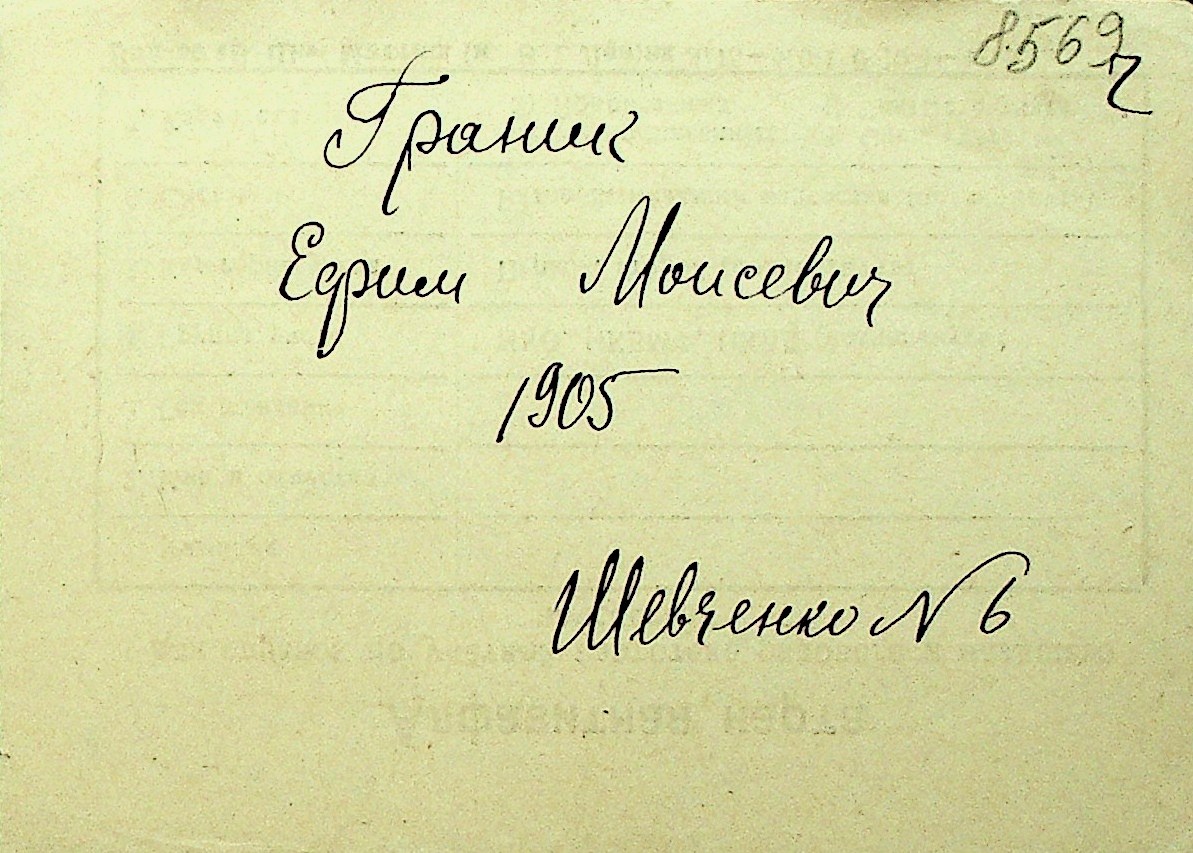 8569
Граник
Ефим Моисевич
1905
Шевченко № 6